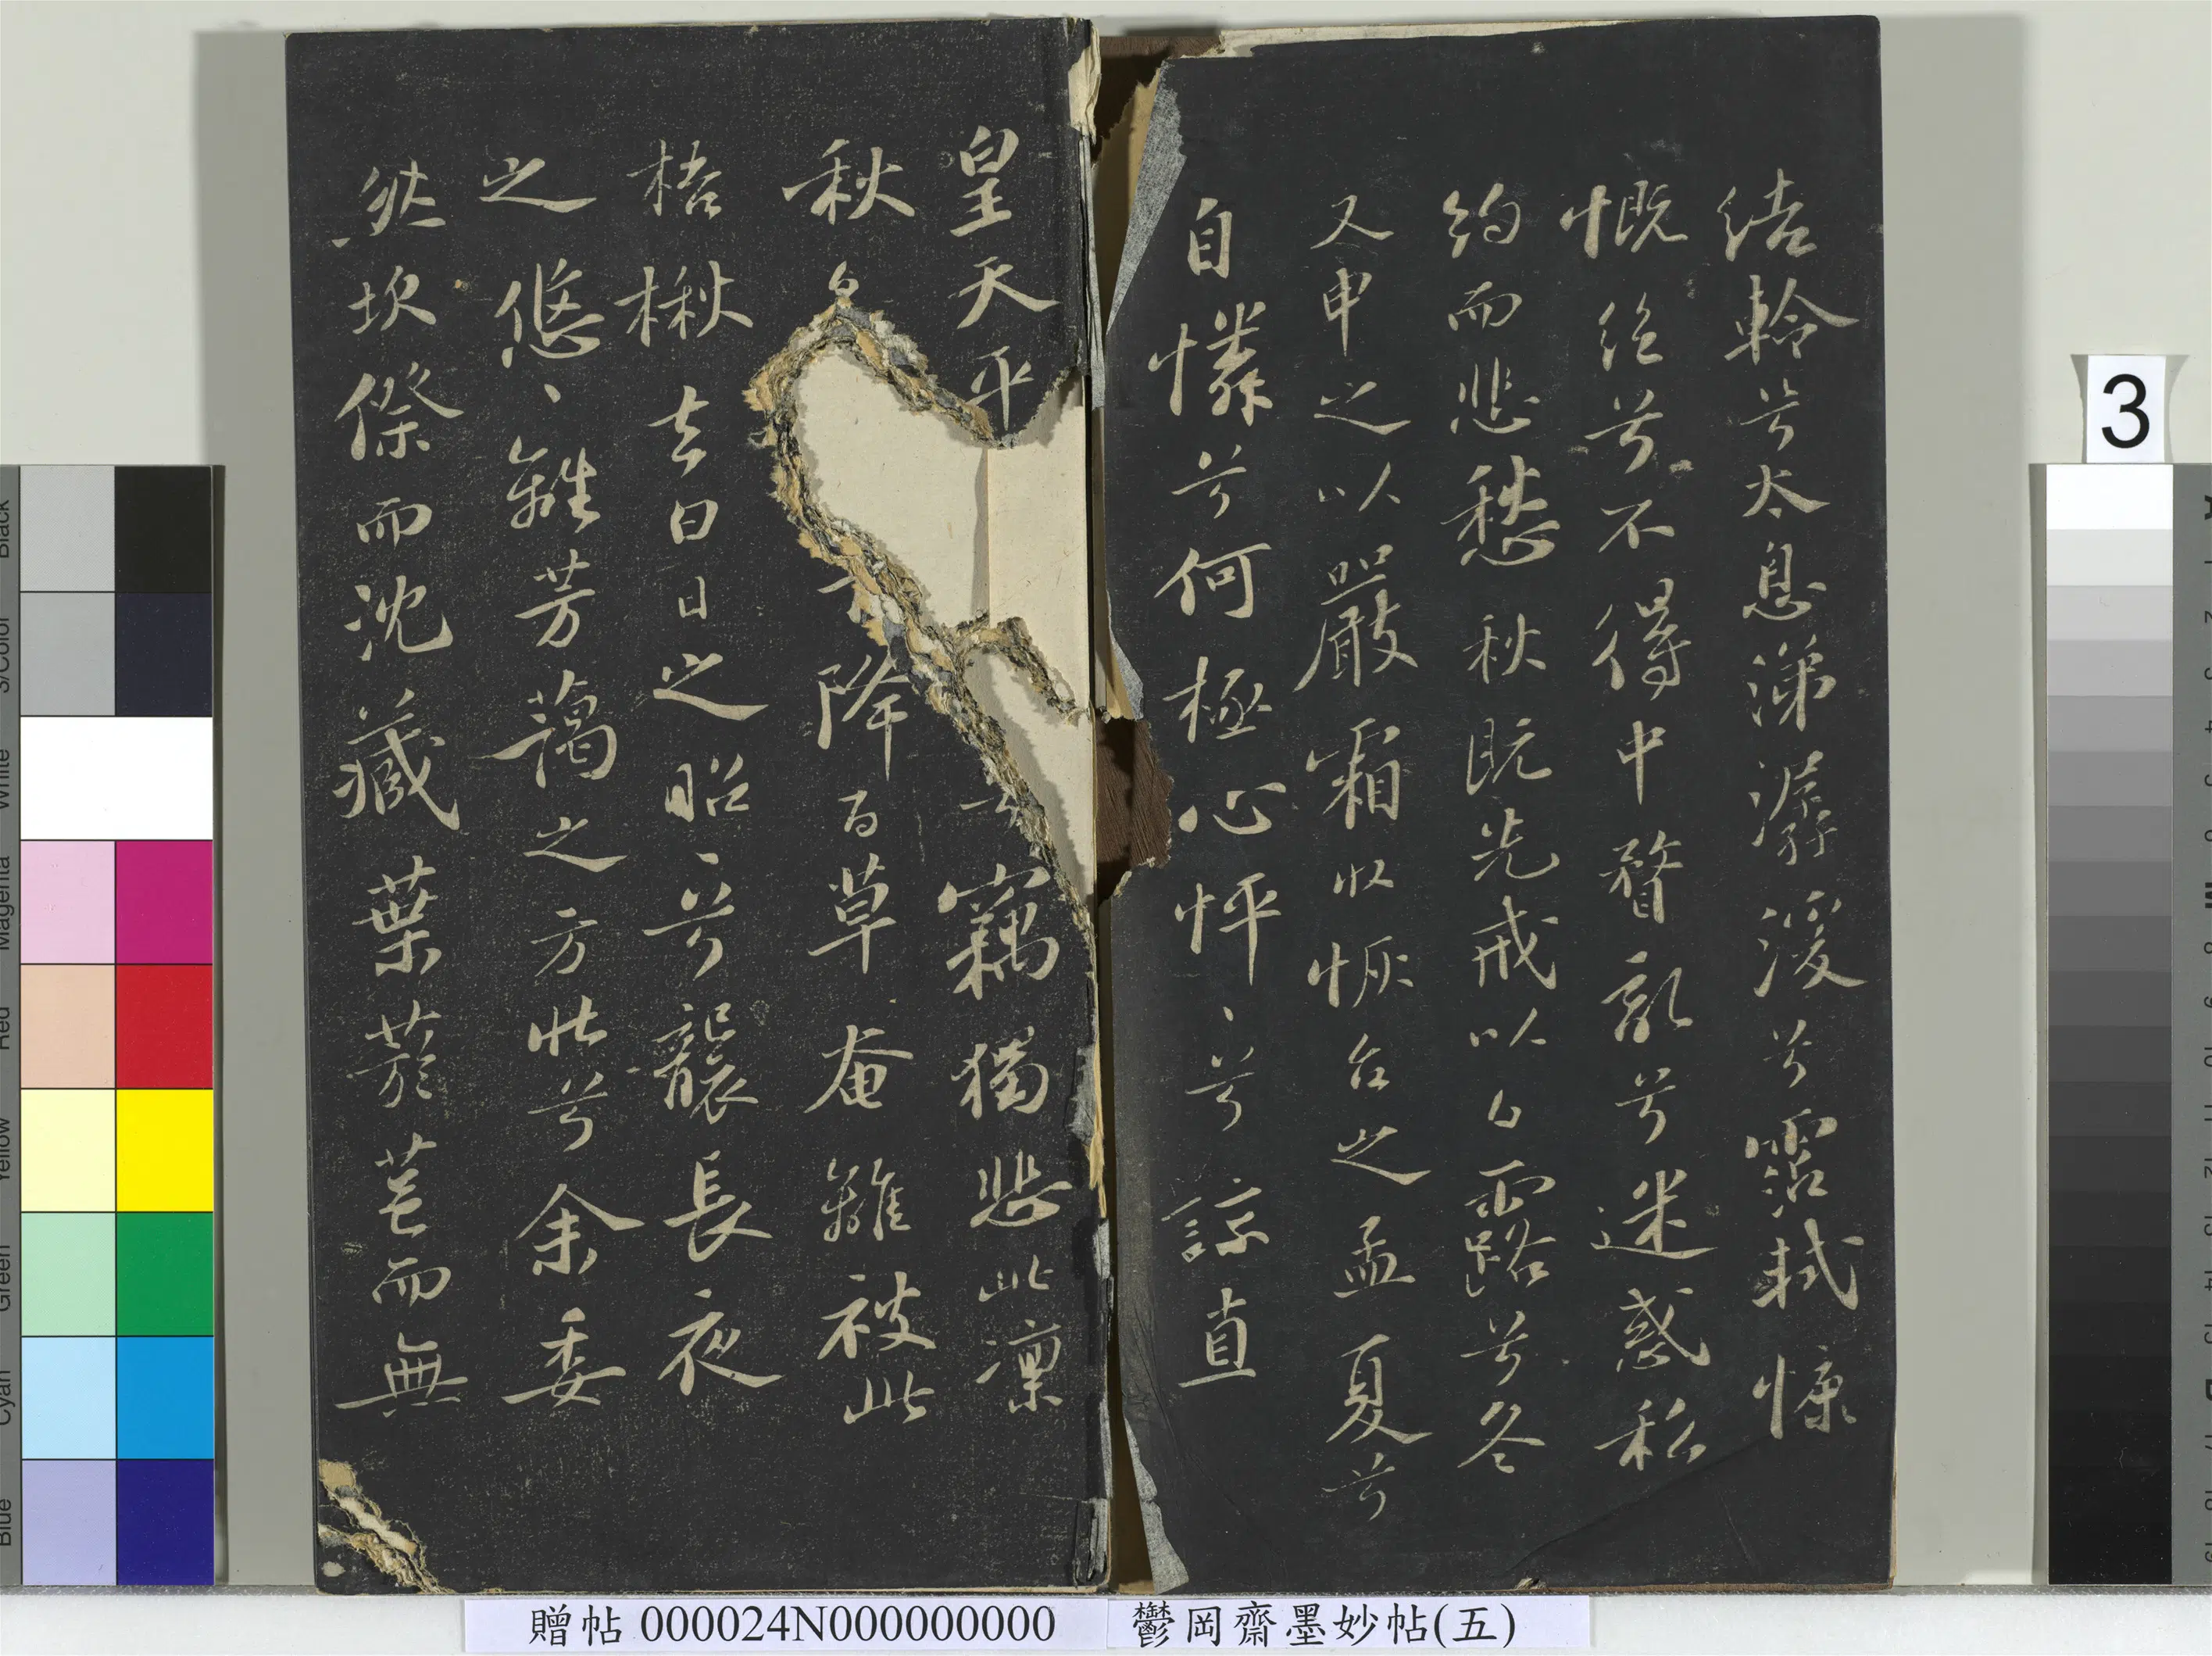 結軨兮太息涕潺湲兮霑軾慷
慨絕兮不得中瞀亂兮迷惑私
約而悲愁秋既先戒以白露兮冬
又申之以嚴霜收恢台之孟夏兮
自憐兮何極心怦、兮諒直
皇天平竊獨悲此凜
秋白降百草奄離被此
梧楸去白日之昭、兮襲長夜
之悠、離芳藹之方壯兮余委
然坎傺而沈藏葉菸而無
贈帖 000024N000000000
鬱岡齋墨妙帖(五)
3
Black
3/Color
White
Magenta
Red
Yellow
Green
Cyan
Blue